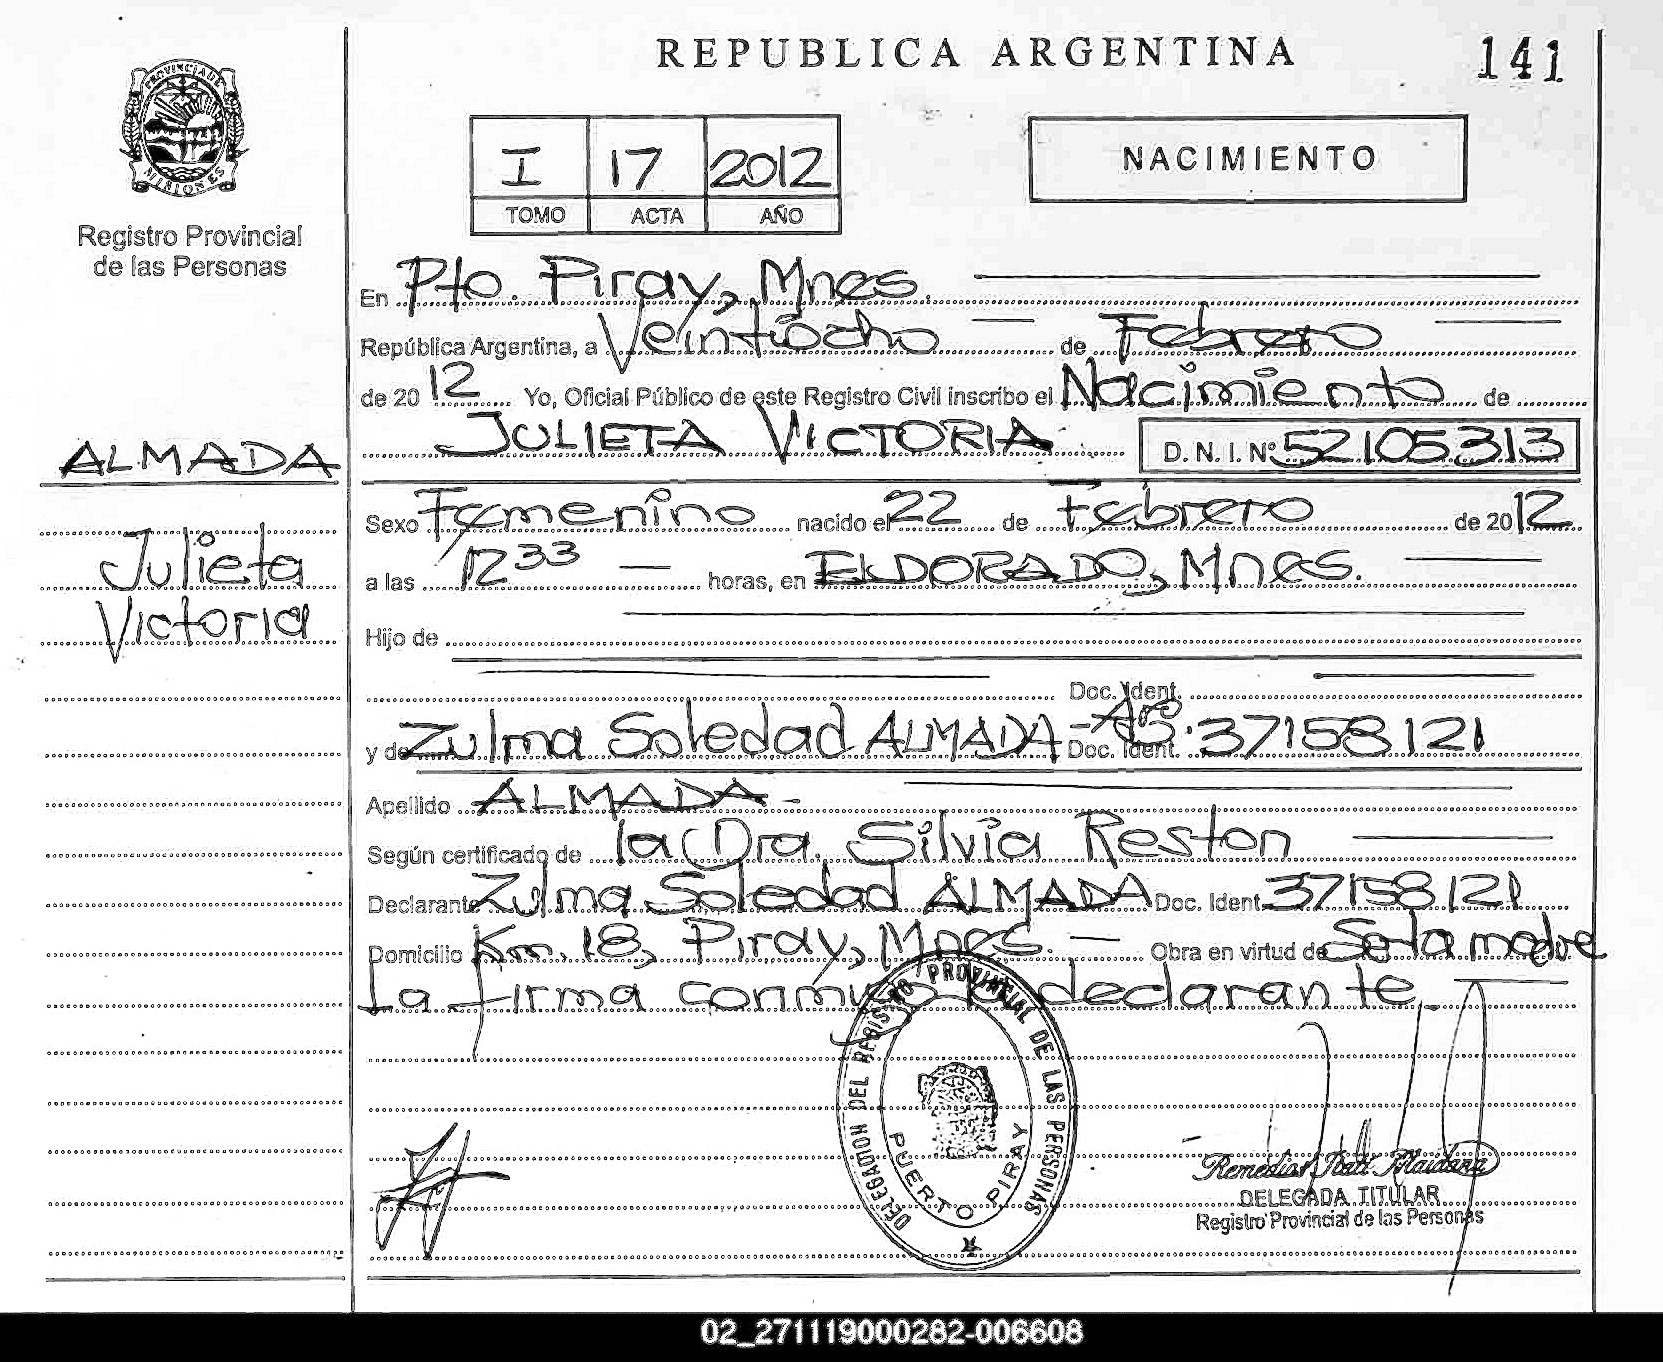 REPUBLICA ARGENTINA
141
PROVINCIA DE
MISIONES
Registro Provincial
de las Personas
I 17 2012
TOMO ACTA AÑO
NACIMIENTO
En Pto. Piray, Mnes.
República Argentina, a Veintiocho de Febrero
de 2012 Yo, Oficial Público de este Registro Civil inscribo el Nacimiento de
JULIETA VICTORIA D.N.I. Nº 52105313
ALMADA
Julieta
Victoria
Sexo Femenino nacido el 22 de Febrero de 2012
a las 12 33 horas, en ELDORADO, Mnes.
Hijo de
Doc. Ident.
y de Zulma Soledad ALMADA - Arg Doc. Ident. 37158121
Apellido ALMADA -
Según certificado de la Dra. Silvia Reston
Declarante Zulma Soledad ALMADA Doc. Ident 37158121
Domicilio Km. 18, Piray, Mnes. - Obra en virtud de Ser la madre
La firma conmigo la declarante.
DELEGACION DEL REGISTRO PROVINCIAL DE LAS PERSONAS
PUERTO PIRAY
Remedios Maidana
DELEGADA TITULAR
Registro Provincial de las Personas
02_271119000282-006608